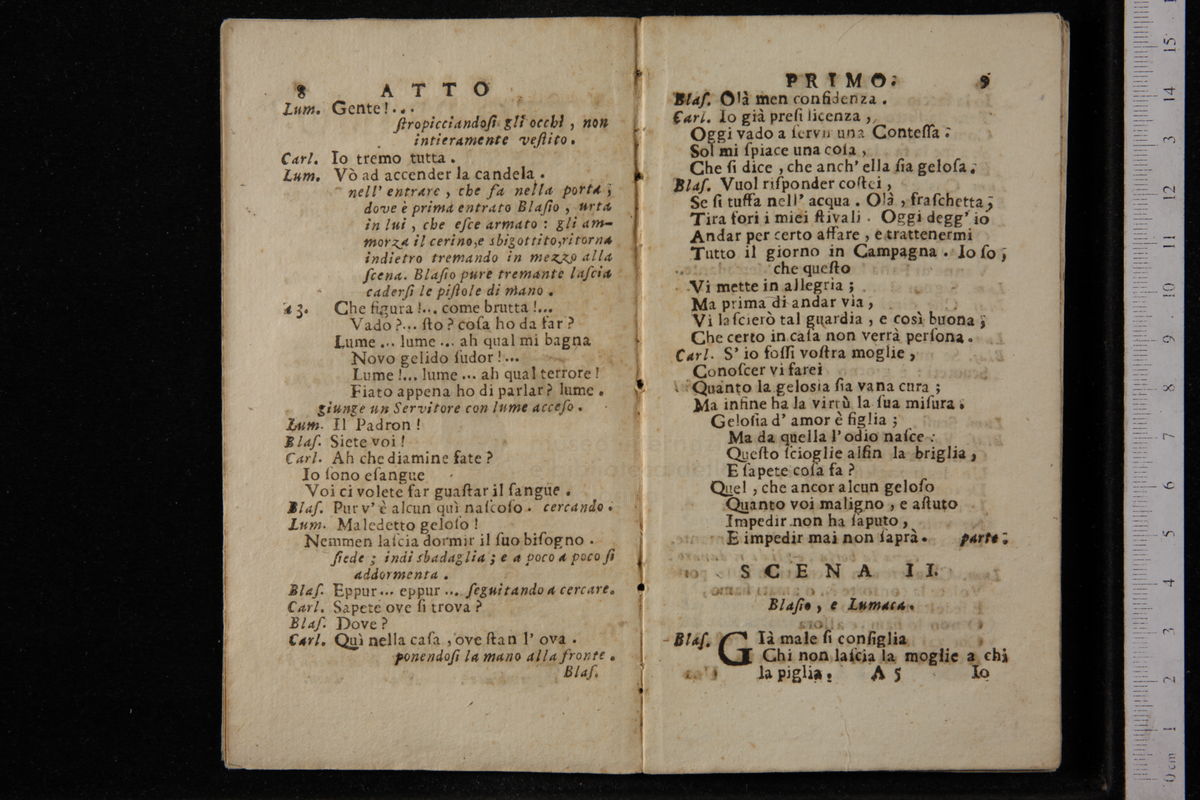 8 ATTO
Lum. Gente!...
ſtropicciandoſi gli occhi, non
intieramente veſtito.
Carl. Io tremo tutta.
Lum. Vò ad accender la candela.
nell' entrare, che fa nella porta;
dove è prima entrato Blaſio, urta
in lui, che eſce armato: gli am-
morza il cerino, e sbigottito, ritorna
indietro tremando in mezzo alla
ſcena. Blaſio pure tremante laſcia
caderſi le piſtole di mano.
a 3. Che figura!... come brutta!...
Vado?... ſto? coſa ho da far?
Lume ... lume ... ah qual mi bagna
Novo gelido ſudor!...
Lume!... lume ... ah qual terrore!
Fiato appena ho di parlar? lume.
giunge un Servitore con lume acceſo.
Lum. Il Padron!
Blaſ. Siete voi!
Carl. Ah che diamine fate?
Io ſono eſangue
Voi ci volete far guaſtar il ſangue.
Blaſ. Pur v' è alcun quì naſcoſo. cercando.
Lum. Maledetto geloſo!
Nemmen laſcia dormir il ſuo biſogno.
ſiede; indi sbadaglia; e a poco a poco ſi
addormenta.
Blaſ. Eppur... eppur ... ſeguitando a cercare.
Carl. Sapete ove ſi trova?
Blaſ. Dove?
Carl. Quì nella caſa, ove ſtan l' ova.
ponendoſi la mano alla fronte.
Blaſ.
PRIMO. 9
Blaſ. Olà men confidenza.
Carl. Io già preſi licenza,
Oggi vado a ſervir una Conteſſa:
Sol mi ſpiace una coſa,
Che ſi dice, che anch' ella ſia geloſa.
Blaſ. Vuol riſponder coſtei,
Se ſi tuffa nell' acqua. Olà, fraſchetta;
Tira fori i miei ſtivali. Oggi degg' io
Andar per certo affare, e trattenermi
Tutto il giorno in Campagna. Io ſo;
che queſto
Vi mette in allegria;
Ma prima di andar via,
Vi laſcierò tal guardia, e così buona;
Che certo in caſa non verrà perſona.
Carl. S' io foſſi voſtra moglie,
Conoſcer vi farei
Quanto la gelosia ſia vana cura;
Ma infine ha la virtù la ſua miſura.
Geloſia d' amor è figlia;
Ma da quella l' odio naſce:
Queſto ſcioglie alfin la briglia,
E ſapete coſa fa?
Quel, che ancor alcun geloſo
Quanto voi maligno, e aſtuto
Impedir non ha ſaputo,
E impedir mai non ſaprà. parte.
SCENA II.
Blaſio, e Lumaca.
Blaſ. GIà male ſi conſiglia
Chi non laſcia la moglie a chi
la piglia. A 5 Io
15
14
13
12
11
10
9
8
7
6
5
4
3
2
1
0 cm